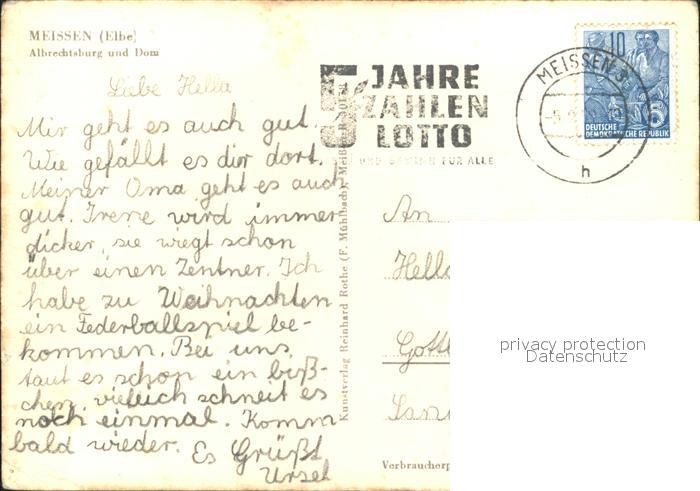 MEISSEN (Elbe)
Albrechtsburg und Dom
Liebe Hella
Mir geht es auch gut.
Wie gefällt es dir dort.
Meiner Oma geht es auch
gut. Irene wird immer
dicker, sie wiegt schon
über einen Zentner. Ich
habe zu Weihnachten
ein Federballspiel be-
kommen. Bei uns
taut es schon ein biß-
chen, vieleich schneit es
noch einmal. Komm
bald wieder. Es Grüßt
Ursel
Kunstverlag Reinhard Rothe (F. Mühlbach), Meißen
5 JAHRE
ZAHLEN
LOTTO
UND GEWINN FÜR ALLE
MEISSEN 3
h
10
5
DEUTSCHE
DEMOKRATISCHE REPUBLIK
An
Hella
Gottl
Verbraucherp
privacy protection
Datenschutz